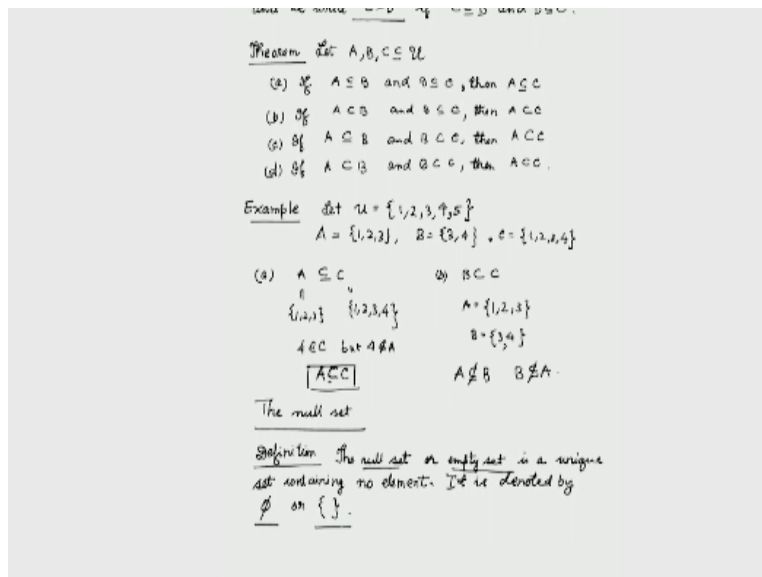 Theorem Let A, B, C ⊆ U
(a) If A ⊆ B and B ⊆ C, then A ⊆ C
(b) If A ⊂ B and B ⊆ C, then A ⊂ C
(c) If A ⊆ B and B ⊂ C, then A ⊂ C
(d) If A ⊂ B and B ⊂ C, then A ⊂ C.
Example Let U = {1,2,3,4,5}
A = {1,2,3}, B = {3,4}, C = {1,2,3,4}
(a) A ⊆ C
{1,2,3} {1,2,3,4}
4 ∈ C but 4 ∉ A
A ⊂ C
(b) B ⊂ C
A = {1,2,3}
B = {3,4}
A ⊄ B B ⊄ A.
The null set
Definition The null set or empty set is a unique
set containing no element. It is denoted by
∅ or { }.